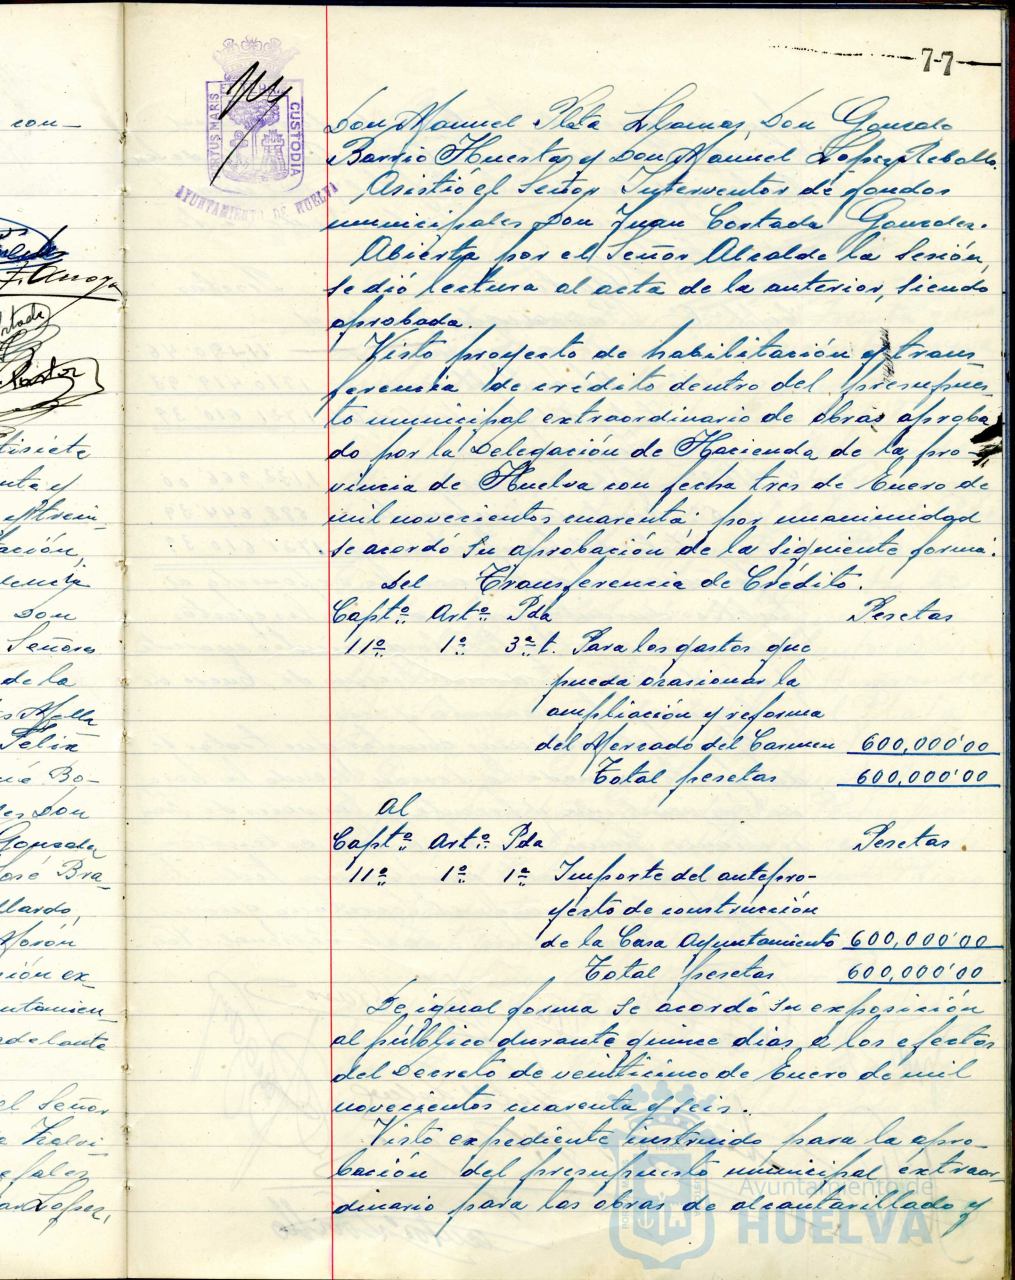 77
PORTUS MARIS
CUSTODIA
AYUNTAMIENTO DE HUELVA
Don Manuel Plata Llamas, Don Gonzalo
Barrio Huerta y Don Manuel Lopez Rebollo.
Asistió el Señor Interventor de fondos
municipales Don Juan Cortada Gonzalez.
Abierta por el Señor Alcalde la Sesión,
se dió lectura al acta de la anterior, siendo
aprobada.
Visto proyecto de habilitación y trans
ferencia de crédito dentro del presupues-
to municipal extraordinario de obras aproba
do por la Delegación de Hacienda de la pro-
vincia de Huelva con fecha tres de Enero de
mil novecientos cuarenta: por unanimidad
se acordó su aprobación de la siguiente forma:
Del Transferencia de Crédito.
Captº. Artº. Pda Pesetas
11º 1º 3ª t. Para los gastos que
pueda ocasionar la
ampliación y reforma
del Mercado del Carmen 600,000'00
Total pesetas 600,000'00
al
Captº. Artº. Pda Pesetas
11º 1º 1ª Importe del antepro-
yecto de construcción
de la Casa Ayuntamiento 600,000'00
Total pesetas 600,000'00
De igual forma se acordó su exposición
al público durante quince dias a los efectos
del Decreto de veinticinco de Enero de mil
novecientos cuarenta y seis.
Visto expediente instruido para la apro-
bación del presupuesto municipal extraor-
dinario para las obras de alcantarillado y
Ayuntamiento de
HUELVA
con-
ación,
Don
Señores
de la
Felix
Bo-
Don
Gonzalo
José Bra-
llardo,
Morón
sión ex-
adelante
el Señor
Lopez,